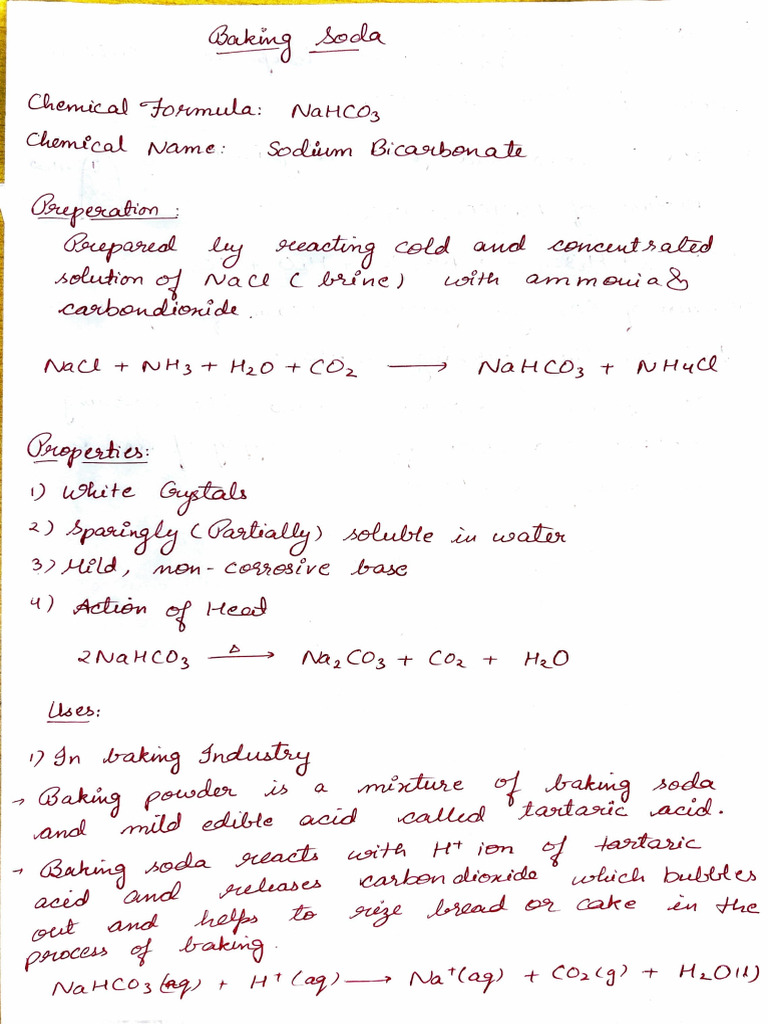 Baking Soda
Chemical Formula: NaHCO3
Chemical Name: Sodium Bicarbonate
Preperation:
Prepared by reacting cold and concentrated
solution of NaCl (brine) with ammonia &
carbondioxide.
NaCl + NH3 + H2O + CO2 ⟶ NaHCO3 + NH4Cl
Properties:
1) White Crystals
2) Sparingly (Partially) soluble in water
3) Mild, non-corrosive base
4) Action of Heat
2NaHCO3 —Δ→ Na2CO3 + CO2 + H2O
Uses:
1) In baking Industry
→ Baking powder is a mixture of baking soda
and mild edible acid called tartaric acid.
→ Baking soda reacts with H+ ion of tartaric
acid and releases carbondioxide which bubbles
out and helps to rize bread or cake in the
process of baking.
NaHCO3(aq) + H+(aq) ⟶ Na+(aq) + CO2(g) + H2O(l)